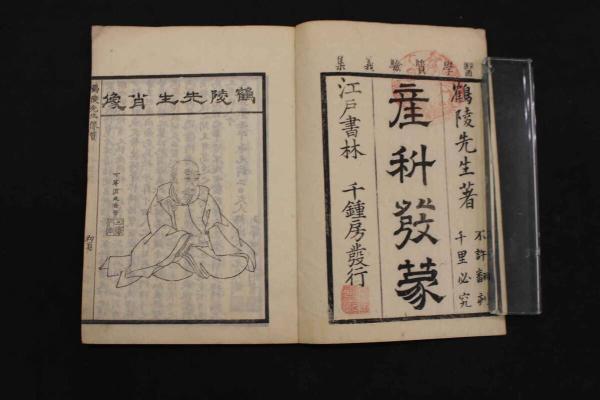 醫學質驗義集
鶴陵先生著
不許翻刻
千里必究
産科發蒙
江戸書林 千鍾房發行
鶴陵先生肖像